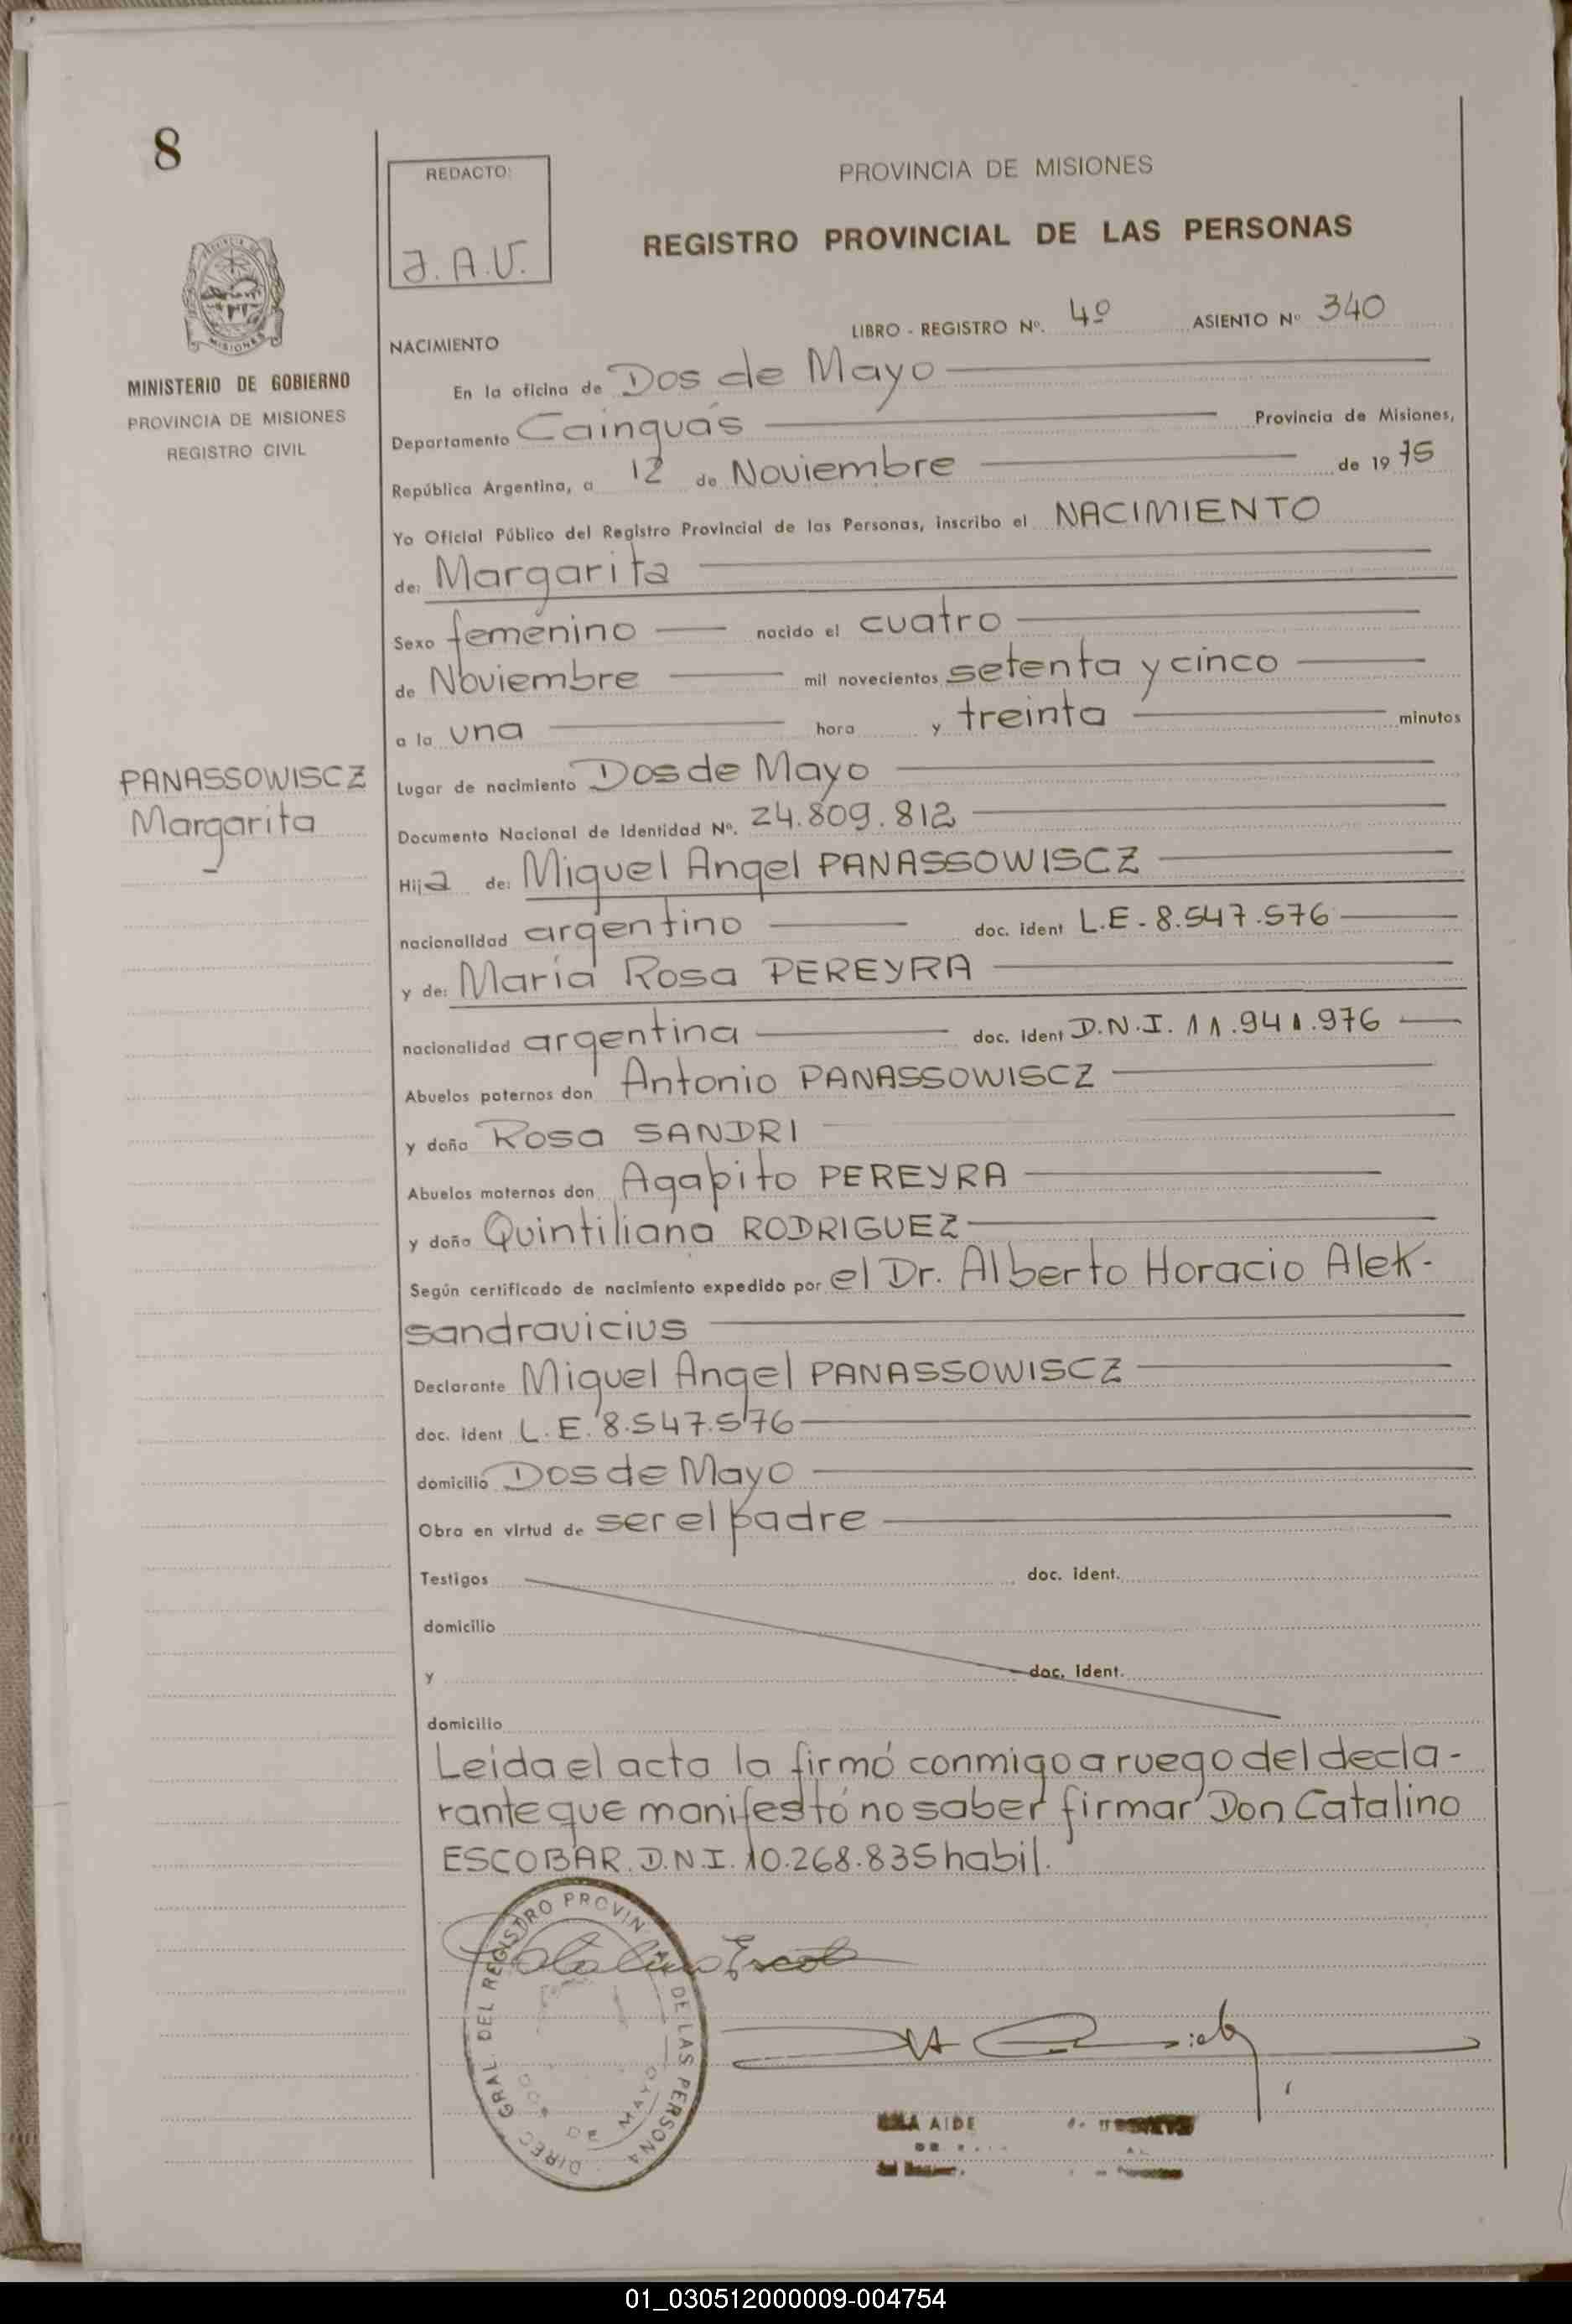 8
REDACTO:
J.A.V.
PROVINCIA DE MISIONES
REGISTRO PROVINCIAL DE LAS PERSONAS
MISIONES
MINISTERIO DE GOBIERNO
PROVINCIA DE MISIONES
REGISTRO CIVIL
LIBRO - REGISTRO Nº. 4º ASIENTO Nº 340
NACIMIENTO
En la oficina de Dos de Mayo
Departamento Cainguás Provincia de Misiones,
República Argentina, a 12 de Noviembre de 1975
Yo Oficial Público del Registro Provincial de las Personas, inscribo el NACIMIENTO
de: Margarita
Sexo femenino nacido el cuatro
de Noviembre mil novecientos setenta y cinco
a la una hora y treinta minutos
PANASSOWISCZ
Margarita
Lugar de nacimiento Dos de Mayo
Documento Nacional de Identidad Nº. 24.809.812
Hija de: Miguel Angel PANASSOWISCZ
nacionalidad argentino doc. ident L.E - 8.547.576
y de: María Rosa PEREYRA
nacionalidad argentina doc. ident D.N.I. 11.941.976
Abuelos paternos don Antonio PANASSOWISCZ
y doña Rosa SANDRI
Abuelos maternos don Agapito PEREYRA
y doña Quintiliana RODRIGUEZ
Según certificado de nacimiento expedido por el Dr. Alberto Horacio Alek-
sandravicius
Declarante Miguel Angel PANASSOWISCZ
doc. ident L.E. 8.547.576
domicilio Dos de Mayo
Obra en virtud de ser el padre
Testigos doc. ident.
domicilio
y doc. ident.
domicilio
Leída el acta la firmó conmigo a ruego del decla-
rante que manifestó no saber firmar Don Catalino
ESCOBAR. D.N.I. 10.268.835 habil.
Catalino Escob
DIREC. GRAL. DEL REGISTRO PROVIN DE LAS PERSONA
DOS DE MAYO
AIDE
01_030512000009-004754